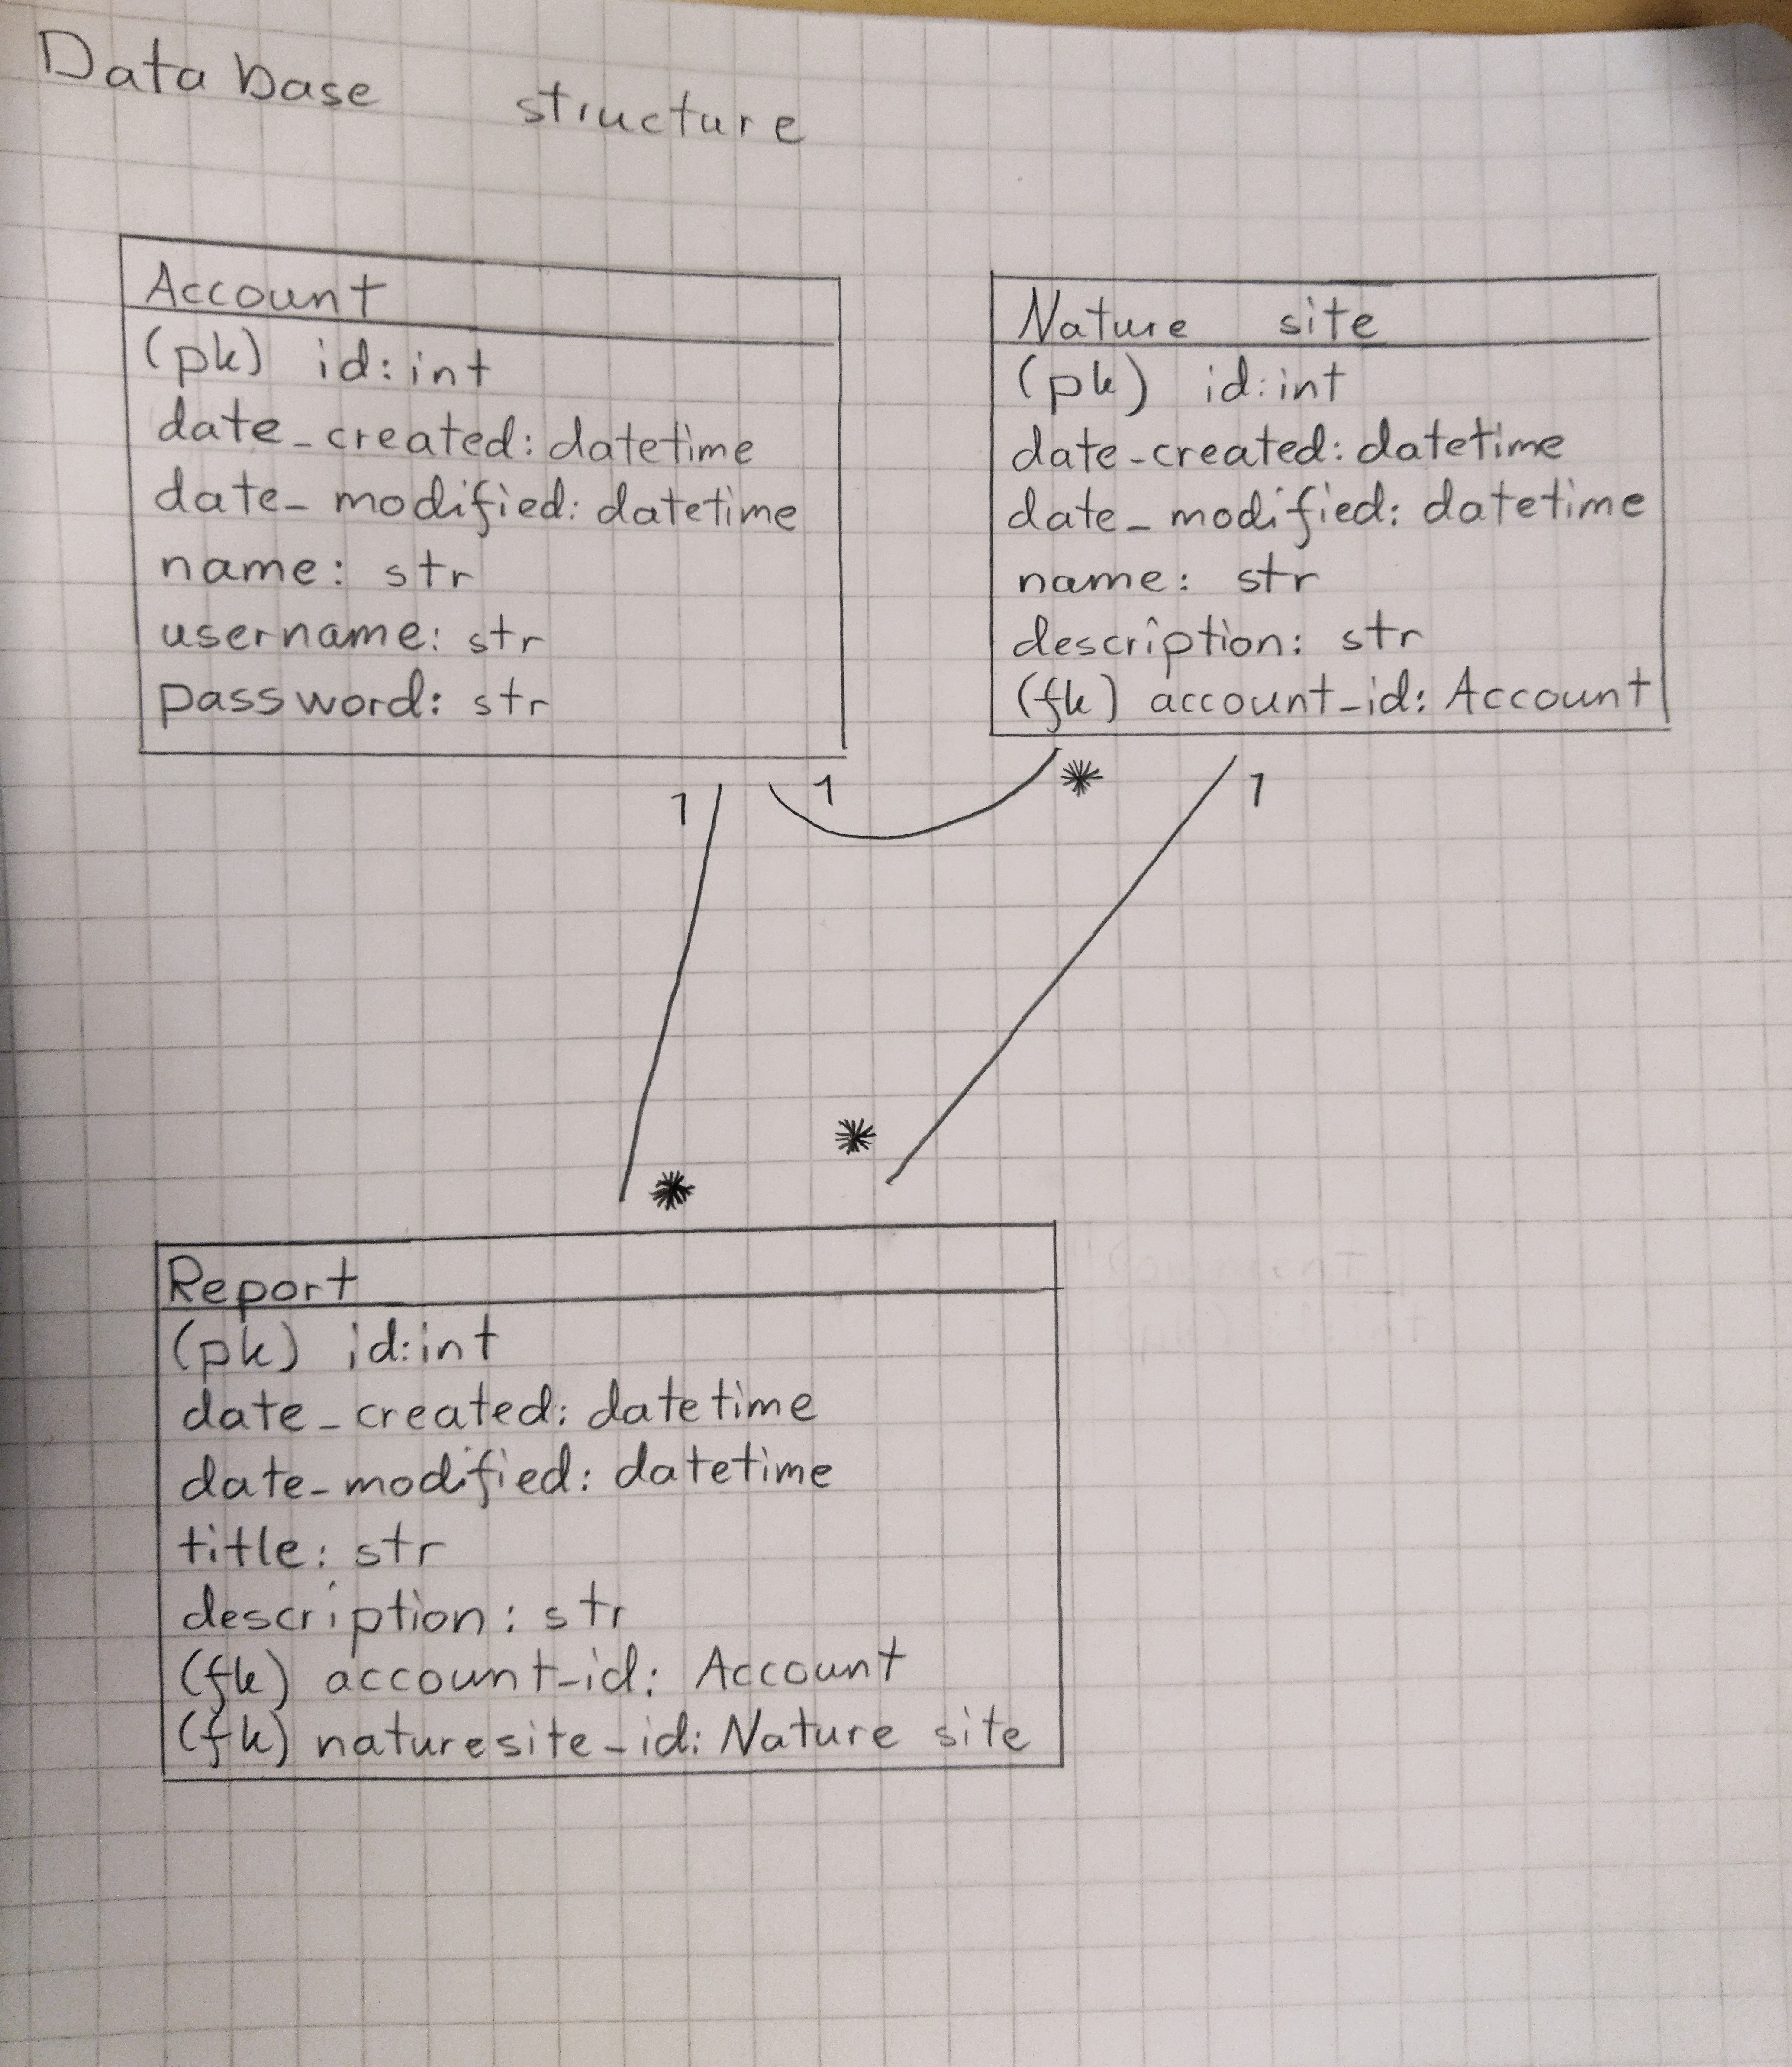 Database structure
Account
(pk) id: int
date_created: datetime
date_modified: datetime
name: str
username: str
password: str
Nature site
(pk) id: int
date_created: datetime
date_modified: datetime
name: str
description: str
(fk) account_id: Account
1 1 * 1
*
*
Report
(pk) id: int
date_created: datetime
date_modified: datetime
title: str
description: str
(fk) account_id: Account
(fk) naturesite_id: Nature site